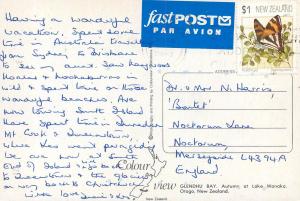 Having a wonderful
vacation. Spent some
time in Australia travell
from Sydney to Brisbane
to see my aunt. Saw Kangaroos
Koalas & Kookaburras in
wild & spent time on those
wonderful beaches. Are
now touring South Island
have spent time in
Mt Cook & Queenstown,
where we went
we are now at South
End of Island
to & the glaciers
on way back to Christchurch
Like
fast POST
PAR AVION
$1 NEW ZEALAND
ADDRESS
Dr. & Mrs N. Harris,
Noctorum Lane,
Noctorum,
Merseyside L43 9
England
Colour
view
GLENDHU BAY. Autumn, at Lake Wanaka.
Otago, New Zealand.